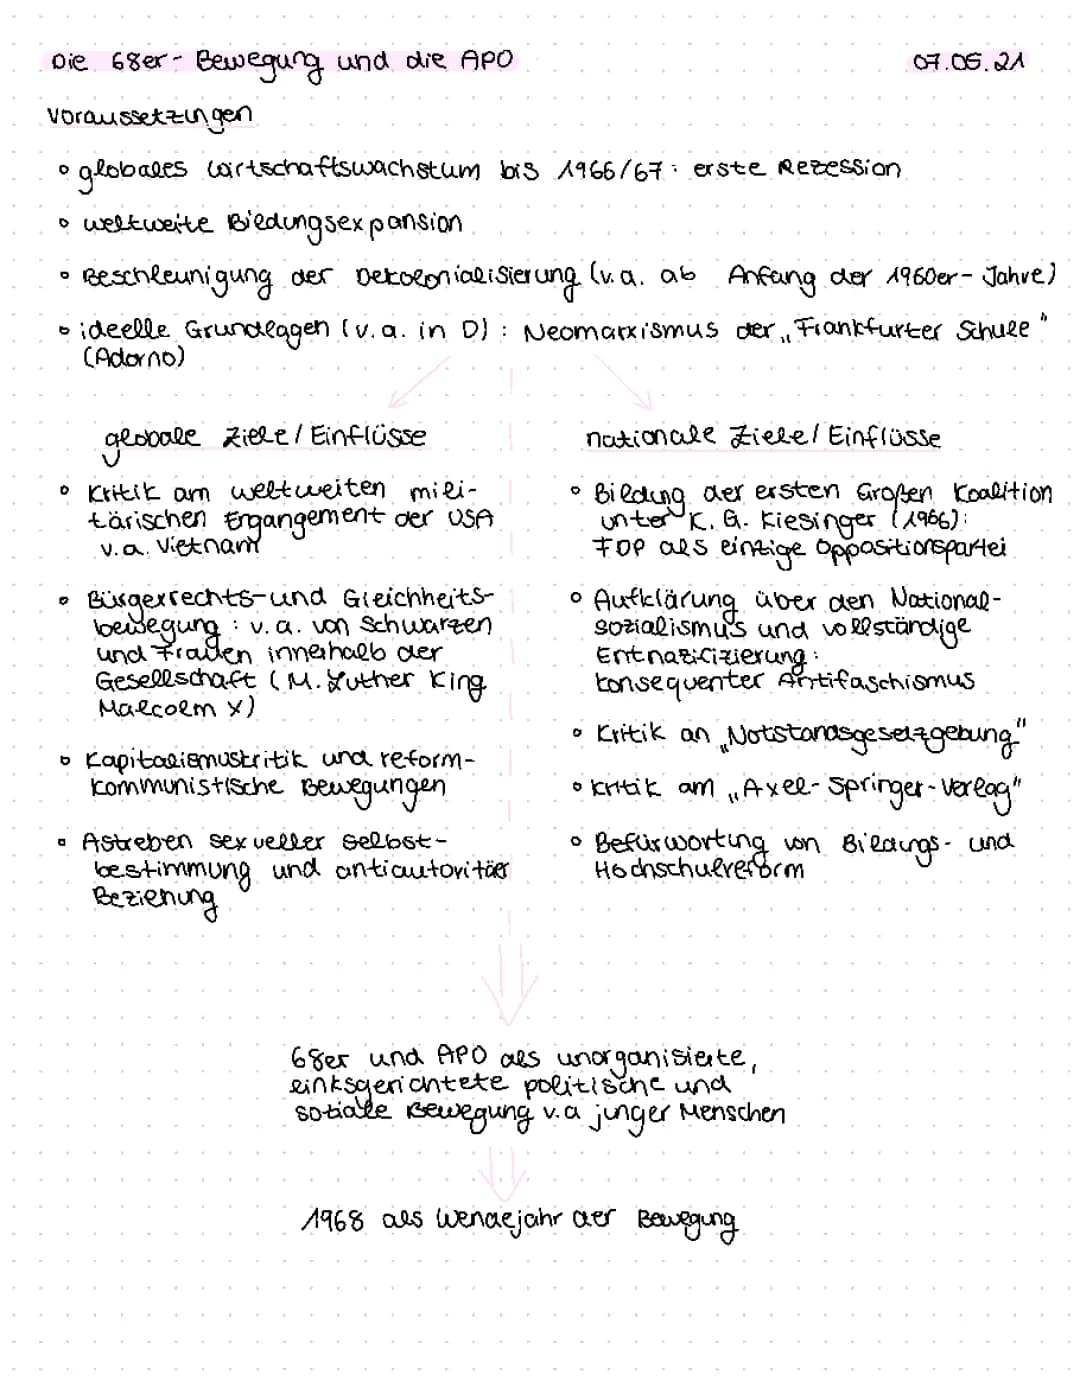 Die 68er-Bewegung und die APO
07.05.21
Voraussetzungen
globales Wirtschaftswachstum bis 1966/67: erste Rezession
weltweite Bildungsexpansion
Beschleunigung der Dekolonialisierung (v.a. ab Anfang der 1960er-Jahre)
ideelle Grundlaggen (v.a. in D): Neomarxismus der „Frankfurter Schule"
(Adorno)
globale Ziele/Einflüsse
Kritik am weltweiten mili-
tärischen Ergangement der USA
v.a. Vietnam
Bürgerrechts-und Gleichheits-
bewegung: v.a. von Schwarzen
und Frauen innerhalb der
Gesellschaft (M. Luther King
Malcolm X)
Kapitalismuskritik und reform-
kommunistische Bewegungen
Astreben sexueller Selbst-
bestimmung und antiautoritär
Beziehung
nationale Ziele/Einflüsse
Bildung der ersten Großen Koalition
unter K. G. Kiesinger (1966):
FDP als einzige Oppositionspartei
Aufklärung über den National-
sozialismus und vollständige
Entnazifizierung:
konsequenter Antifaschismus
Kritik an „Notstandsgesetzgebung"
Kritik am „Axel-Springer-Verlag"
Befürworting von Bildungs- und
Hochschulreform
68er und APO als unorganisierte,
linksgerichtete politische und
soziale Bewegung v.a junger Menschen
1968 als Wendejahr der Bewegung